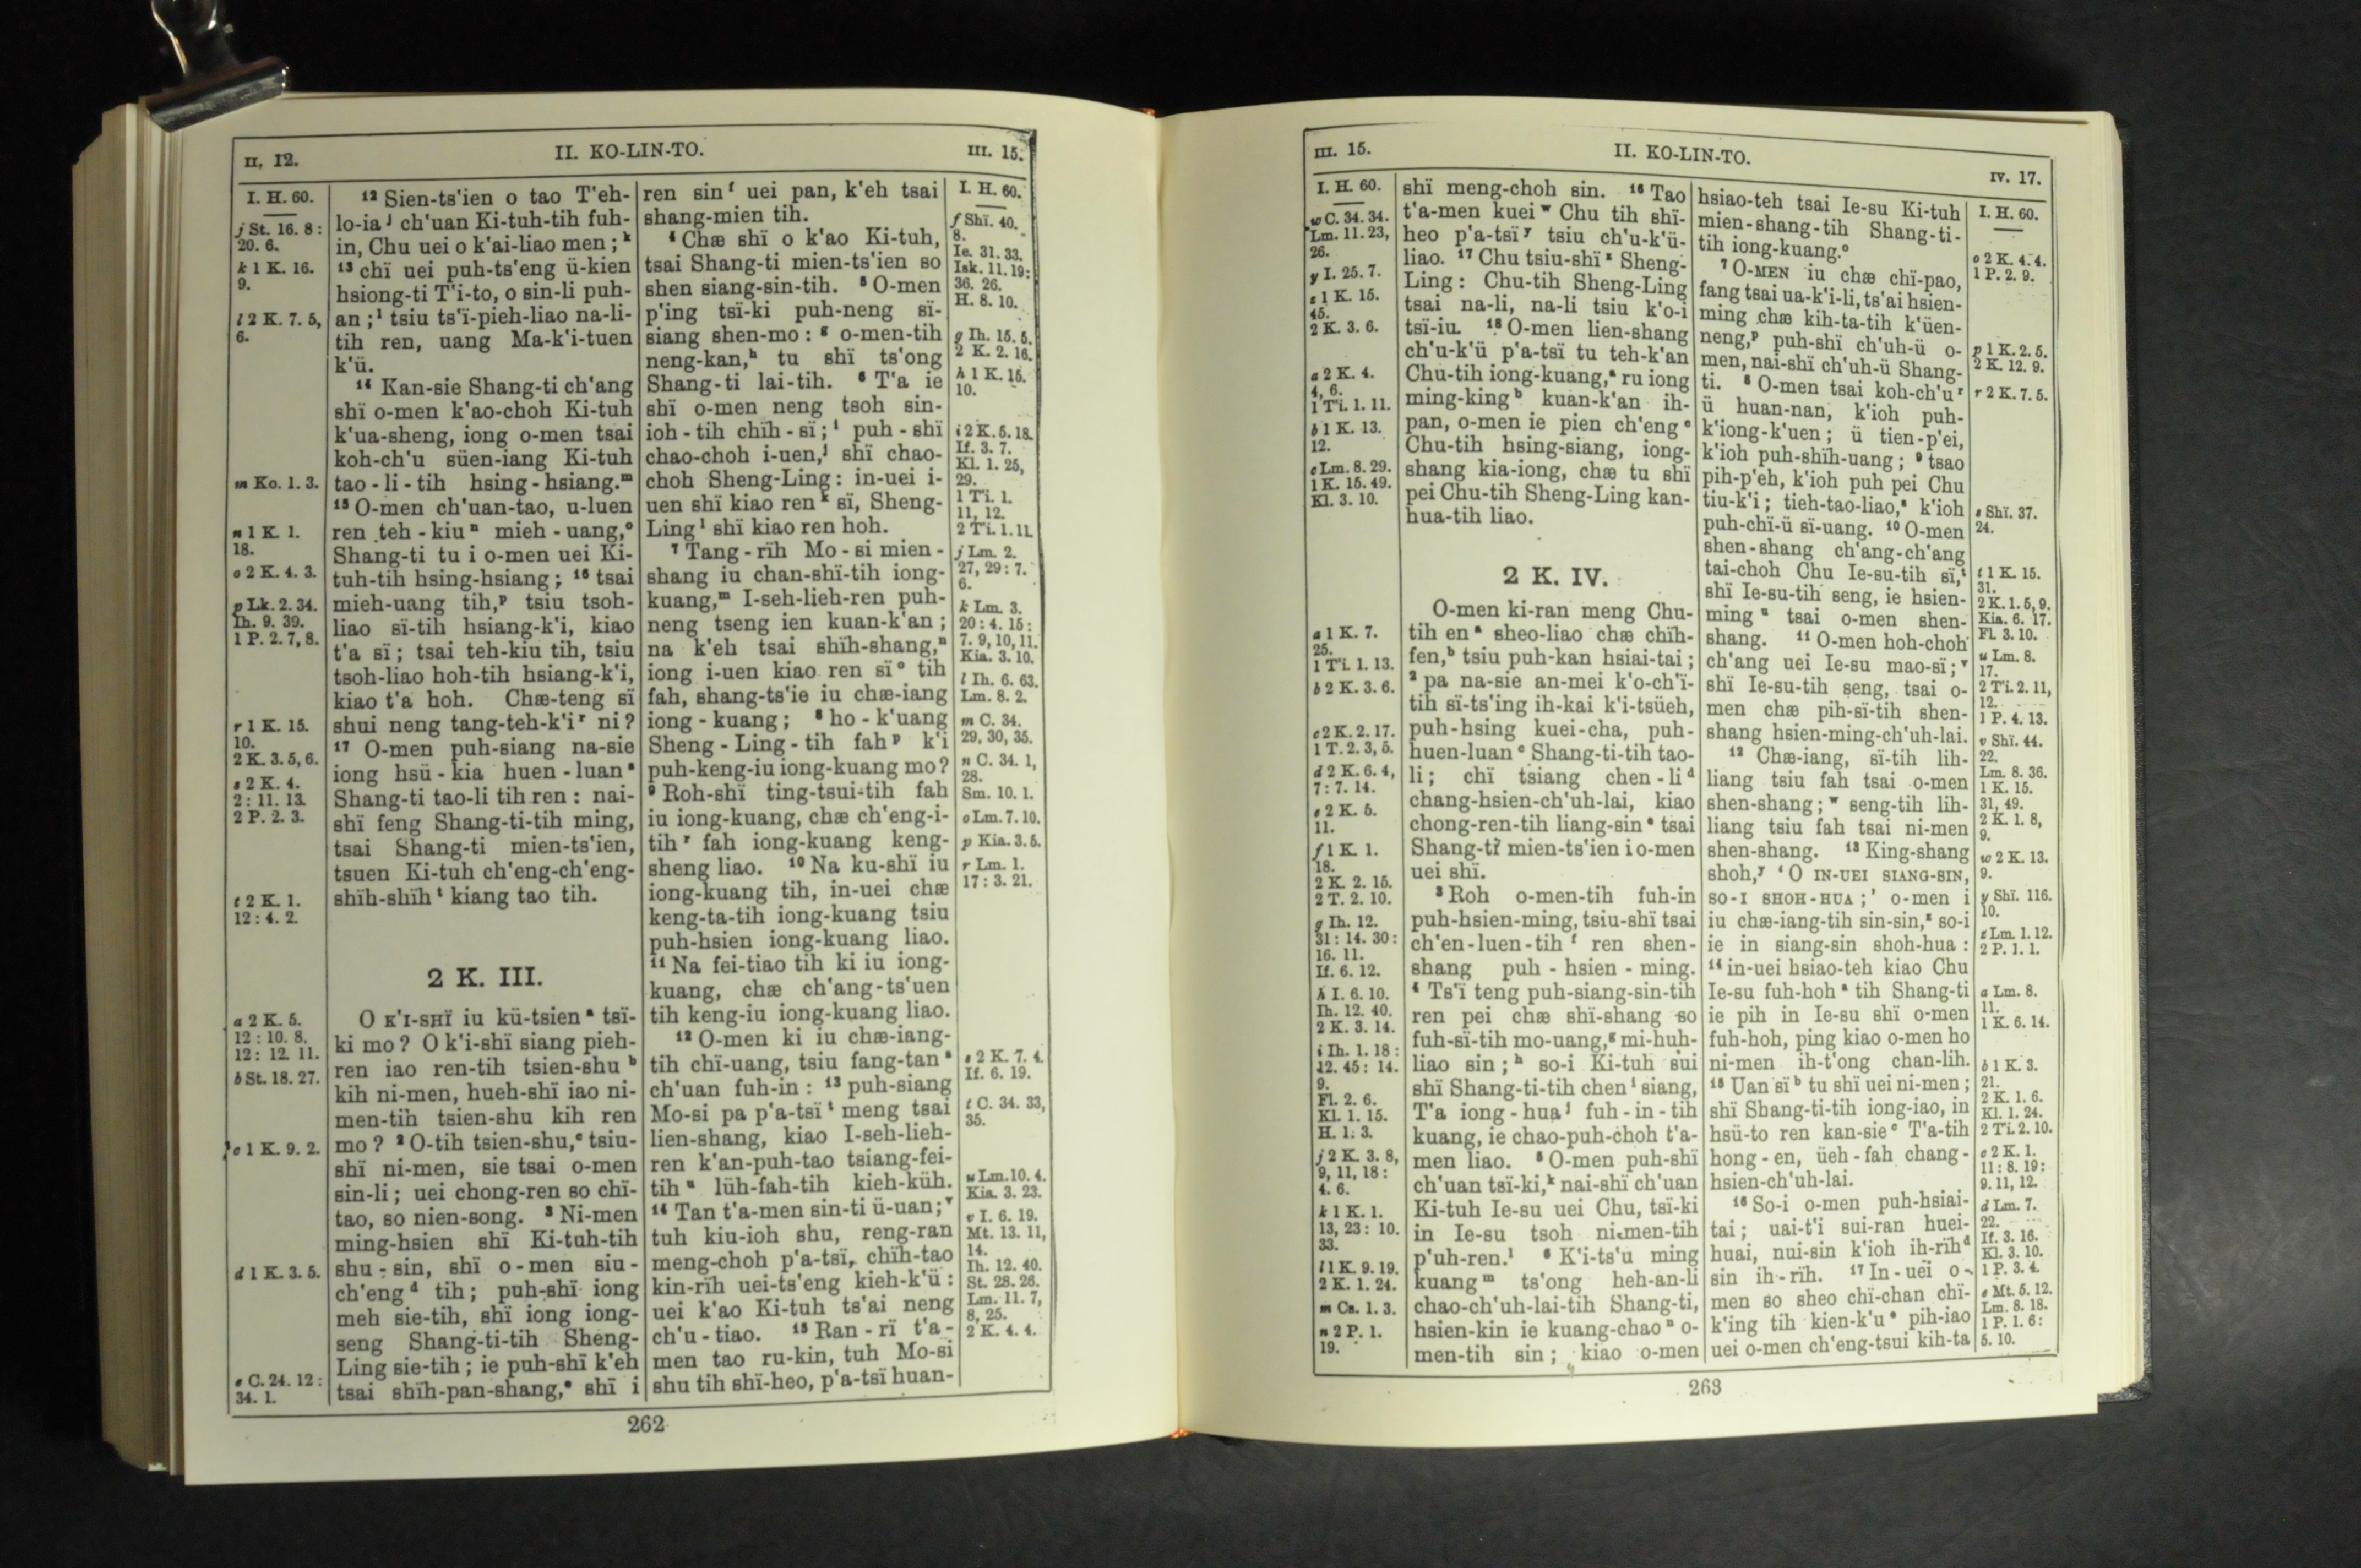 II. 12.
II. KO-LIN-TO.
III. 15.
I. H. 60.
j St. 16. 8 :
20. 6.
k 1 K. 16.
9.
l 2 K. 7. 5,
6.
m Ko. 1. 3.
n 1 K. 1.
18.
o 2 K. 4. 3.
p Lk. 2. 34.
Ih. 9. 39.
1 P. 2. 7, 8.
r 1 K. 15.
10.
2 K. 3. 5, 6.
s 2 K. 4.
2 : 11. 13.
2 P. 2. 3.
t 2 K. 1.
12 : 4. 2.
a 2 K. 5.
12 : 10. 8,
12 : 12. 11.
b St. 18. 27.
c 1 K. 9. 2.
d 1 K. 3. 5.
e C. 24. 12 :
34. 1.
12 Sien-ts'ien o tao T'eh-
lo-ia j ch'uan Ki-tuh-tih fuh-
in, Chu uei o k'ai-liao men ; k
13 chï uei puh-ts'eng ü-kien
hsiong-ti T'i-to, o sin-li puh-
an ; l tsiu ts'ï-pieh-liao na-li-
tih ren, uang Ma-k'i-tuen
k'ü.
14 Kan-sie Shang-ti ch'ang
shï o-men k'ao-choh Ki-tuh
k'ua-sheng, iong o-men tsai
koh-ch'u süen-iang Ki-tuh
tao - li - tih hsing - hsiang. m
15 O-men ch'uan-tao, u-luen
ren teh - kiu n mieh - uang, o
Shang-ti tu i o-men uei Ki-
tuh-tih hsing-hsiang ; 16 tsai
mieh-uang tih, p tsiu tsoh-
liao sï-tih hsiang-k'i, kiao
t'a sï ; tsai teh-kiu tih, tsiu
tsoh-liao hoh-tih hsiang-k'i,
kiao t'a hoh. Chæ-teng sï
shui neng tang-teh-k'i r ni ?
17 O-men puh-siang na-sie
iong hsü - kia huen - luan s
Shang-ti tao-li tih ren : nai-
shï feng Shang-ti-tih ming,
tsai Shang-ti mien-ts'ien,
tsuen Ki-tuh ch'eng-ch'eng-
shïh-shïh t kiang tao tih.
2 K. III.
O K'I-SHÏ iu kü-tsien a tsï-
ki mo ? O k'i-shï siang pieh-
ren iao ren-tih tsien-shu b
kih ni-men, hueh-shï iao ni-
men-tih tsien-shu kih ren
mo ? 2 O-tih tsien-shu, c tsiu-
shï ni-men, sie tsai o-men
sin-li ; uei chong-ren so chï-
tao, so nien-song. 3 Ni-men
ming-hsien shï Ki-tuh-tih
shu - sin, shï o - men siu -
ch'eng d tih ; puh-shï iong
meh sie-tih, shï iong iong-
seng Shang-ti-tih Sheng-
Ling sie-tih ; ie puh-shï k'eh
tsai shïh-pan-shang, e shï i
ren sin f uei pan, k'eh tsai
shang-mien tih.
4 Chæ shï o k'ao Ki-tuh,
tsai Shang-ti mien-ts'ien so
shen siang-sin-tih. 5 O-men
p'ing tsï-ki puh-neng sï-
siang shen-mo : g o-men-tih
neng-kan, h tu shï ts'ong
Shang-ti lai-tih. 6 T'a ie
shï o-men neng tsoh sin-
ioh - tih chïh - sï ; i puh - shï
chao-choh i-uen, j shï chao-
choh Sheng-Ling : in-uei i-
uen shï kiao ren k sï, Sheng-
Ling l shï kiao ren hoh.
7 Tang - rïh Mo - si mien -
shang iu chan-shï-tih iong-
kuang, m I-seh-lieh-ren puh-
neng tseng ien kuan-k'an ;
na k'eh tsai shïh-shang, n
iong i-uen kiao ren sï o tih
fah, shang-ts'ie iu chæ-iang
iong - kuang ; 8 ho - k'uang
Sheng - Ling - tih fah p k'i
puh-keng-iu iong-kuang mo ?
9 Roh-shï ting-tsui-tih fah
iu iong-kuang, chæ ch'eng-i-
tih r fah iong-kuang keng-
sheng liao. 10 Na ku-shï iu
iong-kuang tih, in-uei chæ
keng-ta-tih iong-kuang tsiu
puh-hsien iong-kuang liao.
11 Na fei-tiao tih ki iu iong-
kuang, chæ ch'ang-ts'uen
tih keng-iu iong-kuang liao.
12 O-men ki iu chæ-iang-
tih chï-uang, tsiu fang-tan s
ch'uan fuh-in : 13 puh-siang
Mo-si pa p'a-tsï t meng tsai
lien-shang, kiao I-seh-lieh-
ren k'an-puh-tao tsiang-fei-
tih u lüh-fah-tih kieh-küh.
14 Tan t'a-men sin-ti ü-uan ; v
tuh kiu-ioh shu, reng-ran
meng-choh p'a-tsï, chïh-tao
kin-rïh uei-ts'eng kieh-k'ü :
uei k'ao Ki-tuh ts'ai neng
ch'u - tiao. 15 Ran - rï t'a -
men tao ru-kin, tuh Mo-si
shu tih shï-heo, p'a-tsï huan-
I. H. 60.
f Shï. 40.
8.
Ie. 31. 33.
Isk. 11. 19 :
36. 26.
H. 8. 10.
g Ih. 15. 5.
2 K. 2. 16.
h 1 K. 15.
10.
i 2 K. 5. 18.
If. 3. 7.
Kl. 1. 25,
29.
1 Ti. 1.
11, 12.
2 Ti. 1. 11.
j Lm. 2.
27, 29 : 7.
6.
k Lm. 3.
20 : 4. 15 :
7. 9, 10, 11.
Kia. 3. 10.
l Ih. 6. 63.
Lm. 8. 2.
m C. 34.
29, 30, 35.
n C. 34. 1,
28.
Sm. 10. 1.
o Lm. 7. 10.
p Kia. 3. 5.
r Lm. 1.
17 : 3. 21.
s 2 K. 7. 4.
If. 6. 19.
t C. 34. 33,
35.
u Lm. 10. 4.
Kia. 3. 23.
v I. 6. 19.
Mt. 13. 11,
14.
Ih. 12. 40.
St. 28. 26.
Lm. 11. 7,
8, 25.
2 K. 4. 4.
262
III. 15.
II. KO-LIN-TO.
IV. 17.
I. H. 60.
w C. 34. 34.
Lm. 11. 23,
26.
y I. 25. 7.
z 1 K. 15.
45.
2 K. 3. 6.
a 2 K. 4.
4, 6.
1 Ti. 1. 11.
b 1 K. 13.
12.
c Lm. 8. 29.
1 K. 15. 49.
Kl. 3. 10.
a 1 K. 7.
25.
1 Ti. 1. 13.
b 2 K. 3. 6.
c 2 K. 2. 17.
1 T. 2. 3, 5.
d 2 K. 6. 4,
7 : 7. 14.
e 2 K. 5.
11.
f 1 K. 1.
18.
2 K. 2. 15.
2 T. 2. 10.
g Ih. 12.
31 : 14. 30 :
16. 11.
If. 6. 12.
h I. 6. 10.
Ih. 12. 40.
2 K. 3. 14.
i Ih. 1. 18 :
12. 45 : 14.
9.
Fl. 2. 6.
Kl. 1. 15.
H. 1. 3.
j 2 K. 3. 8,
9, 11, 18 :
4. 6.
k 1 K. 1.
13, 23 : 10.
33.
l 1 K. 9. 19.
2 K. 1. 24.
m Cs. 1. 3.
n 2 P. 1.
19.
shï meng-choh sin. 16 Tao
t'a-men kuei w Chu tih shï-
heo p'a-tsï y tsiu ch'u-k'ü-
liao. 17 Chu tsiu-shï z Sheng-
Ling : Chu-tih Sheng-Ling
tsai na-li, na-li tsiu k'o-i
tsï-iu. 18 O-men lien-shang
ch'u-k'ü p'a-tsï tu teh-k'an
Chu-tih iong-kuang, a ru iong
ming-king b kuan-k'an ih-
pan, o-men ie pien ch'eng c
Chu-tih hsing-siang, iong-
shang kia-iong, chæ tu shï
pei Chu-tih Sheng-Ling kan-
hua-tih liao.
2 K. IV.
O-men ki-ran meng Chu-
tih en a sheo-liao chæ chïh-
fen, b tsiu puh-kan hsiai-tai ;
2 pa na-sie an-mei k'o-ch'ï-
tih sï-ts'ing ih-kai k'i-tsüeh,
puh-hsing kuei-cha, puh-
huen-luan c Shang-ti-tih tao-
li ; chï tsiang chen - li d
chang-hsien-ch'uh-lai, kiao
chong-ren-tih liang-sin e tsai
Shang-ti mien-ts'ien i o-men
uei shï.
3 Roh o-men-tih fuh-in
puh-hsien-ming, tsiu-shï tsai
ch'en-luen-tih f ren shen-
shang puh - hsien - ming.
4 Ts'ï teng puh-siang-sin-tih
ren pei chæ shï-shang so
fuh-sï-tih mo-uang, g mi-huh-
liao sin ; h so-i Ki-tuh sui
shï Shang-ti-tih chen i siang,
T'a iong - hua j fuh - in - tih
kuang, ie chao-puh-choh t'a-
men liao. 5 O-men puh-shï
ch'uan tsï-ki, k nai-shï ch'uan
Ki-tuh Ie-su uei Chu, tsï-ki
in Ie-su tsoh ni-men-tih
p'uh-ren. l 6 K'i-ts'u ming
kuang m ts'ong heh-an-li
chao-ch'uh-lai-tih Shang-ti,
hsien-kin ie kuang-chao n o-
men-tih sin ; kiao o-men
hsiao-teh tsai Ie-su Ki-tuh
mien-shang-tih Shang-ti-
tih iong-kuang. o
7 O-MEN iu chæ chï-pao,
fang tsai ua-k'i-li, ts'ai hsien-
ming chæ kih-ta-tih k'üen-
neng, p puh-shï ch'uh-ü o-
men, nai-shï ch'uh-ü Shang-
ti. 8 O-men tsai koh-ch'u r
ü huan-nan, k'ioh puh-
k'iong-k'uen ; ü tien-p'ei,
k'ioh puh-shïh-uang ; 9 tsao
pih-p'eh, k'ioh puh pei Chu
tiu-k'i ; tieh-tao-liao, s k'ioh
puh-chï-ü sï-uang. 10 O-men
shen - shang ch'ang-ch'ang
tai-choh Chu Ie-su-tih sï, t
shï Ie-su-tih seng, ie hsien-
ming u tsai o-men shen-
shang. 11 O-men hoh-choh
ch'ang uei Ie-su mao-sï ; v
shï Ie-su-tih seng, tsai o-
men chæ pih-sï-tih shen-
shang hsien-ming-ch'uh-lai.
12 Chæ-iang, sï-tih lih-
liang tsiu fah tsai o-men
shen-shang ; w seng-tih lih-
liang tsiu fah tsai ni-men
shen-shang. 13 King-shang
shoh, y 'O IN-UEI SIANG-SIN,
SO-I SHOH-HUA ;' o-men i
iu chæ-iang-tih sin-sin, z so-i
ie in siang-sin shoh-hua :
14 in-uei hsiao-teh kiao Chu
Ie-su fuh-hoh a tih Shang-ti
ie pih in Ie-su shï o-men
fuh-hoh, ping kiao o-men ho
ni-men ih-t'ong chan-lih.
15 Uan sï b tu shï uei ni-men ;
shï Shang-ti-tih iong-iao, in
hsü-to ren kan-sie c T'a-tih
hong - en, üeh - fah chang -
hsien-ch'uh-lai.
16 So-i o-men puh-hsiai-
tai ; uai-t'i sui-ran huei-
huai, nui-sin k'ioh ih-rïh d
sin ih-rïh. 17 In - uei o -
men so sheo chï-chan chï-
k'ing tih kien-k'u e pih-iao
uei o-men ch'eng-tsui kih-ta
I. H. 60.
o 2 K. 4. 4.
1 P. 2. 9.
p 1 K. 2. 5.
2 K. 12. 9.
r 2 K. 7. 5.
s Shï. 37.
24.
t 1 K. 15.
31.
2 K. 1. 5, 9.
Kia. 6. 17.
Fl. 3. 10.
u Lm. 8.
17.
2 Ti. 2. 11,
12.
1 P. 4. 13.
v Shï. 44.
22.
Lm. 8. 36.
1 K. 15.
31, 49.
2 K. 1. 8,
9.
w 2 K. 13.
9.
y Shï. 116.
10.
z Lm. 1. 12.
2 P. 1. 1.
a Lm. 8.
11.
1 K. 6. 14.
b 1 K. 3.
21.
2 K. 1. 6.
Kl. 1. 24.
2 Ti. 2. 10.
c 2 K. 1.
11 : 8. 19 :
9. 11, 12.
d Lm. 7.
22.
If. 3. 16.
Kl. 3. 10.
1 P. 3. 4.
e Mt. 5. 12.
Lm. 8. 18.
1 P. 1. 6 :
5. 10.
263